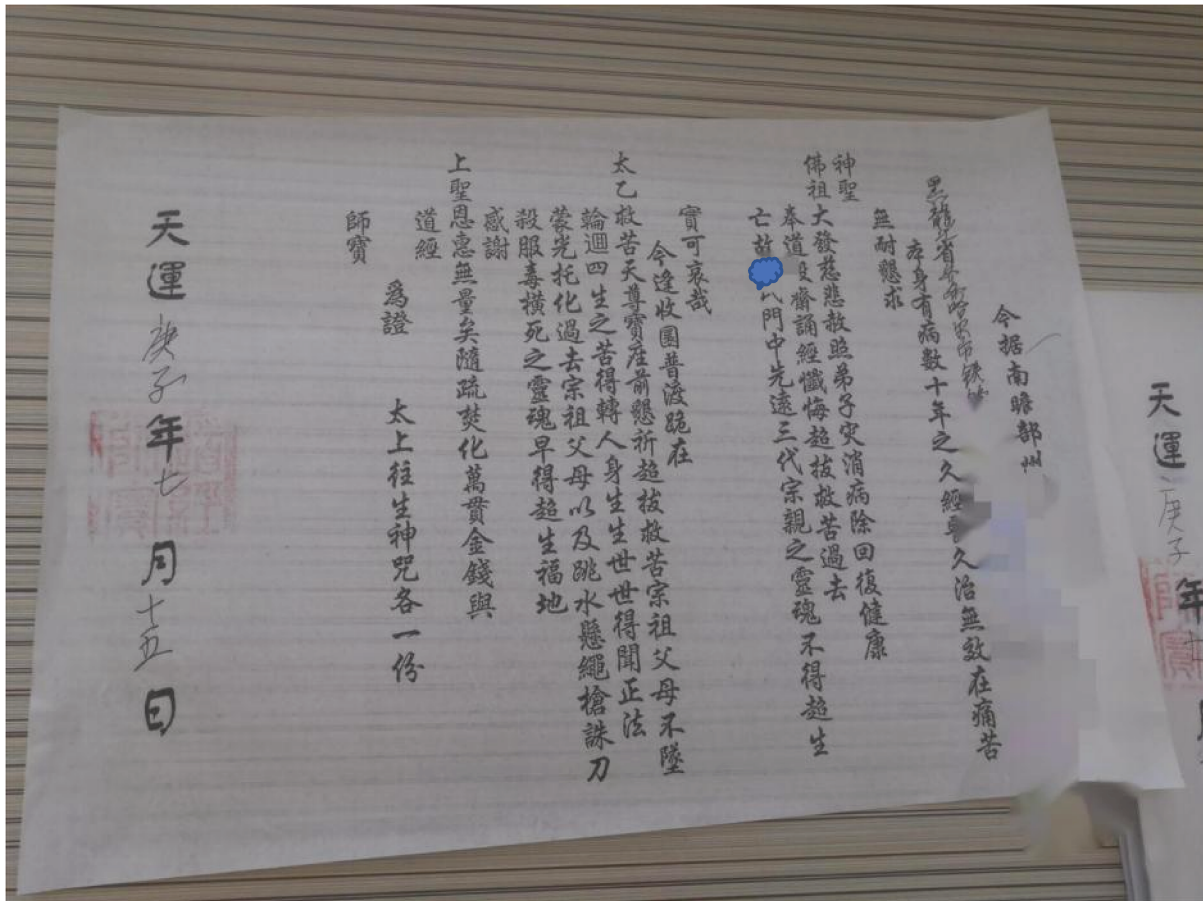 今据南瞻部州
黑龍江省
本身有病數十年之久經久治無效在痛苦
無耐懇求
神聖
佛祖大發慈悲赦照弟子灾消病除回復健康
奉道設齋誦經懺悔超拔救苦過去
亡故門中先遠三代宗親之靈魂不得超生
實可哀哉
今逢收圓普渡跪在
太乙救苦天尊寶座前懇祈超拔救苦宗祖父母不墜
輪迴四生之苦得轉人身生生世世得聞正法
蒙光托化過去宗祖父母以及跳水懸繩槍誅刀
殺服毒橫死之靈魂早得超生福地
感謝
上聖恩惠無量矣隨疏焚化萬貫金錢與
道經
師寶
爲證 太上往生神咒各一份
天運庚子年七月十五日
天運庚子年
師寶